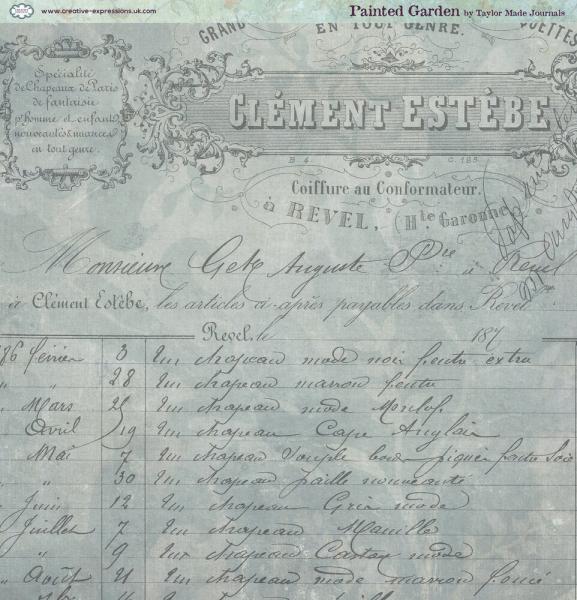 www.creative-expressions.uk.com
Painted Garden by Taylor Made Journals
GRAND EN TOUT GENRE.
Spécialité
de Chapeaux de Paris
de fantaisie
pr homme et enfants
nouveautés & nuances
en tout genre.
CLÉMENT ESTÈBE
B 4. C. 185
Coiffure au Conformateur.
à REVEL, (Hte Garonne)
Monsieur Getz Auguste Pre à Revel
à Clément Estèbe, les articles ci-après payables dans Revel
Revel, le 187
février 3 Un chapeau mode noir feutre extra
" " 28 Un chapeau marron feutre
" Mars 25 Un chapeau mode
Avril 19 Un chapeau Cape Anglais
Mai 7 Un chapeau Souple bord
" " 30 Un chapeau paille nouveauté
" Juin 12 Un chapeau Gris mode
Juillet 7 Un chapeau Manille
" 9 Un chapeau mode
" Août 21 Un chapeau mode marron foncé